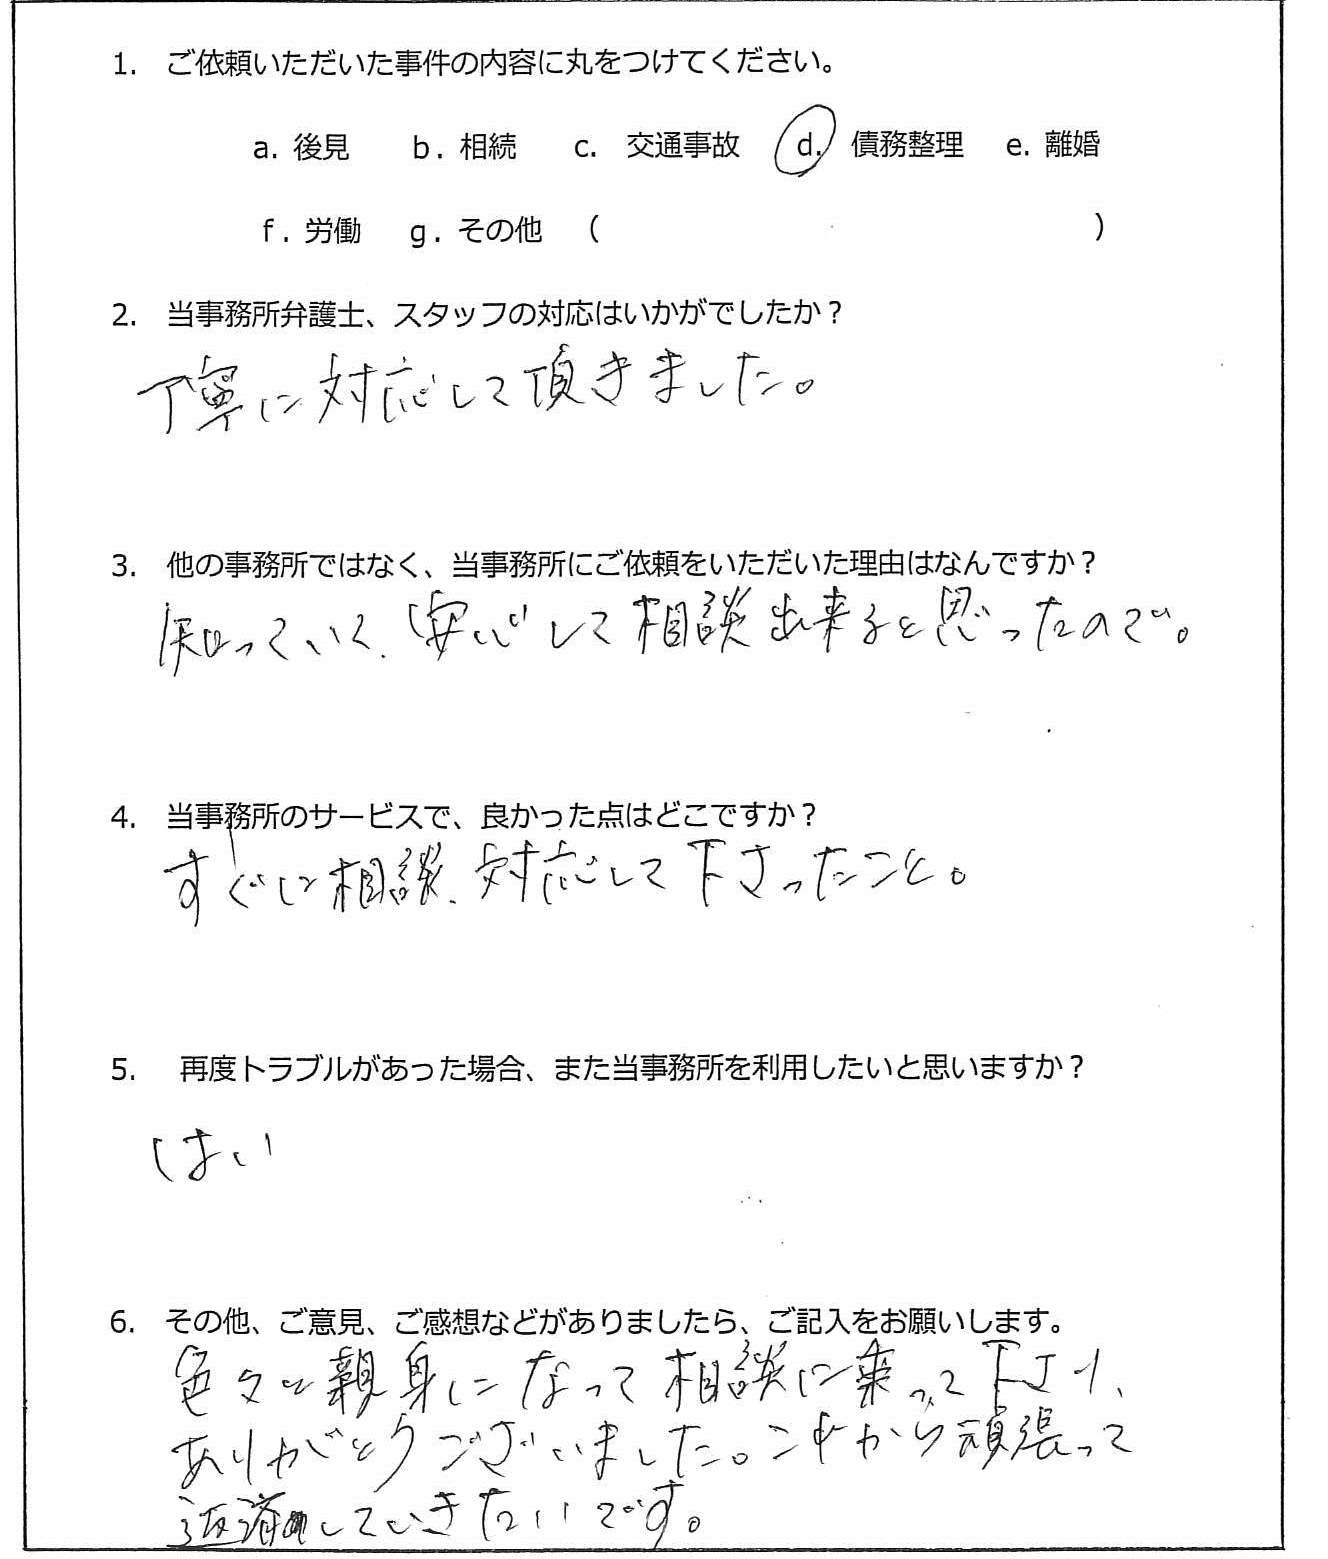 1. ご依頼いただいた事件の内容に丸をつけてください。
a. 後見 b. 相続 c. 交通事故 d. 債務整理 e. 離婚
f. 労働 g. その他 ( )
2. 当事務所弁護士、スタッフの対応はいかがでしたか？
丁寧に対応して頂きました。
3. 他の事務所ではなく、当事務所にご依頼をいただいた理由はなんですか？
知っていて、安心して相談出来ると思ったので。
4. 当事務所のサービスで、良かった点はどこですか？
すぐに相談、対応して下さったこと。
5. 再度トラブルがあった場合、また当事務所を利用したいと思いますか？
はい
6. その他、ご意見、ご感想などがありましたら、ご記入をお願いします。
色々と親身になって相談に乗って下さり、
ありがとうございました。これから頑張って
返済していきたいです。